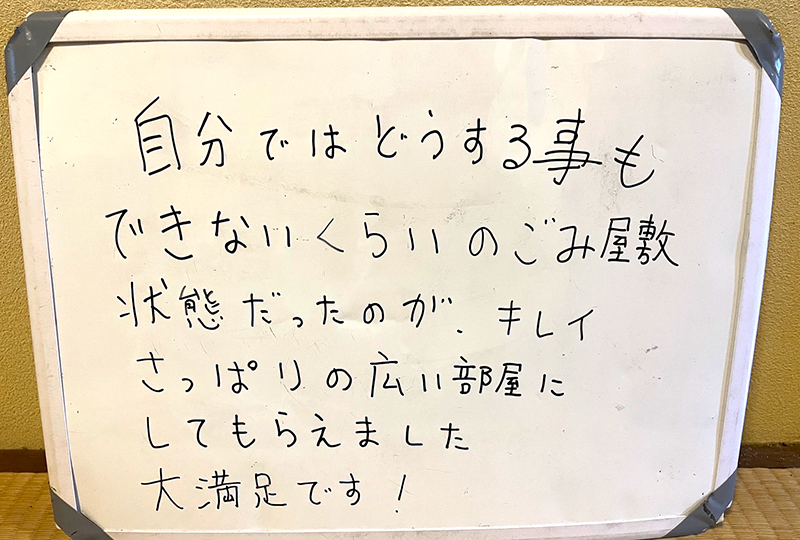 自分ではどうする事も
できないくらいのごみ屋敷
状態だったのが、キレイ
さっぱりの広い部屋に
してもらえました
大満足です!